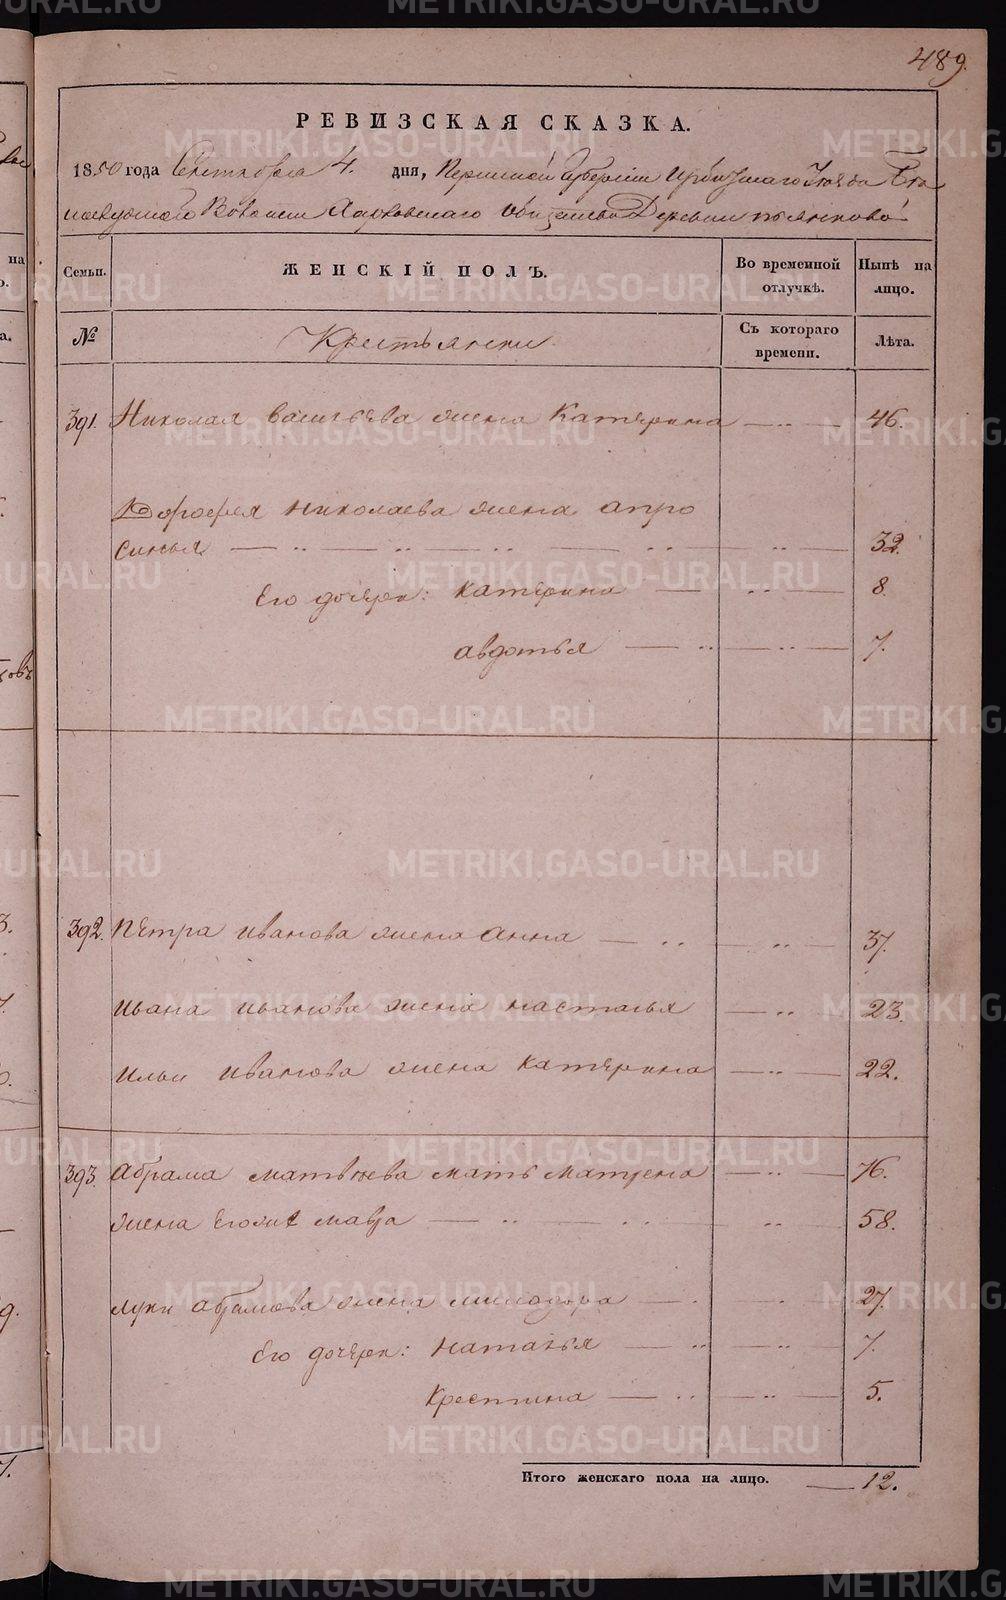 489.
РЕВИЗСКАЯ СКАЗКА.
1850 года Сентября 4. дня, Пермской Губернии Ирбитскаго Уезда
Волости Харловскаго Деревни
Семьи. ЖЕНСКІЙ ПОЛЪ. Во временной отлучкѣ. Нынѣ на лицо.
№ Крестьянки Съ котораго времени. Лѣта.
391. Николая Васильева жена Катерина 46.
Дорофея Николаева жена апро
синья 32.
Его дочери: Катерина 8.
авдотья 7.
392. Петра Иванова жена Анна 37.
Ивана Иванова жена настасья 23.
Ильи Иванова жена Катерина 22.
393. Абрама матвеева мать матрена 76.
жена его же мавра 58.
луки абрамова жена 27.
Его дочери: Наталья 7.
Крестина 5.
Итого женскаго пола на лицо. 12.
METRIKI.GASO-URAL.RU